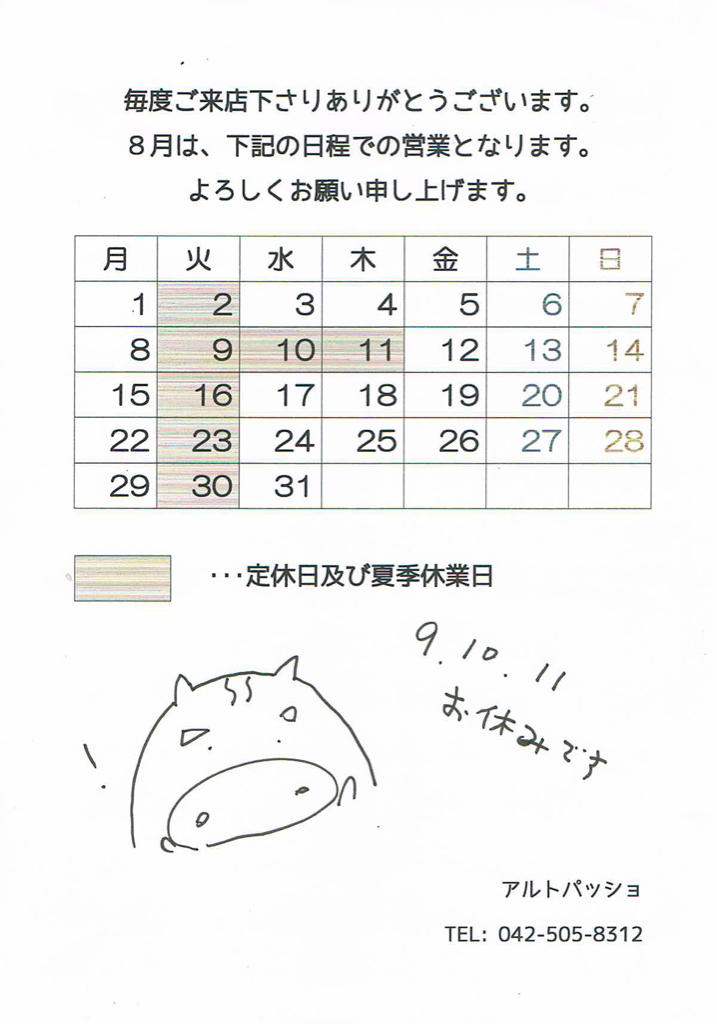 毎度ご来店下さりありがとうございます。
８月は、下記の日程での営業となります。
よろしくお願い申し上げます。
月 火 水 木 金 土 日
1 2 3 4 5 6 7
8 9 10 11 12 13 14
15 16 17 18 19 20 21
22 23 24 25 26 27 28
29 30 31
…定休日及び夏季休業日
9. 10. 11
お休みです
アルトパッショ
TEL: 042-505-8312